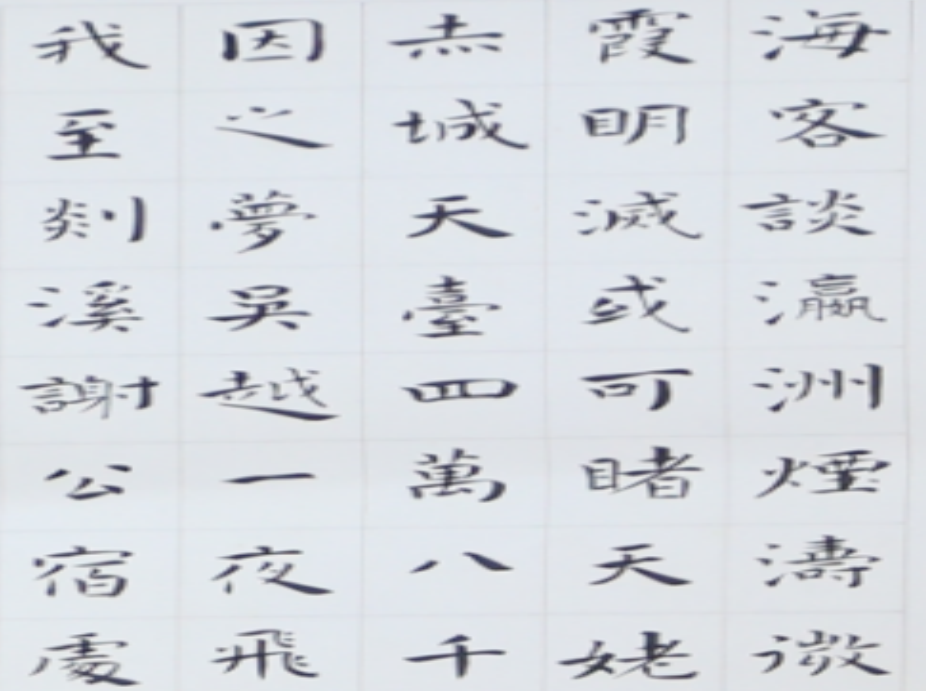 海客談瀛洲煙濤微
霞明滅或可睹天姥
赤城天臺四萬八千
因之夢吳越一夜飛
我至剡溪謝公宿處